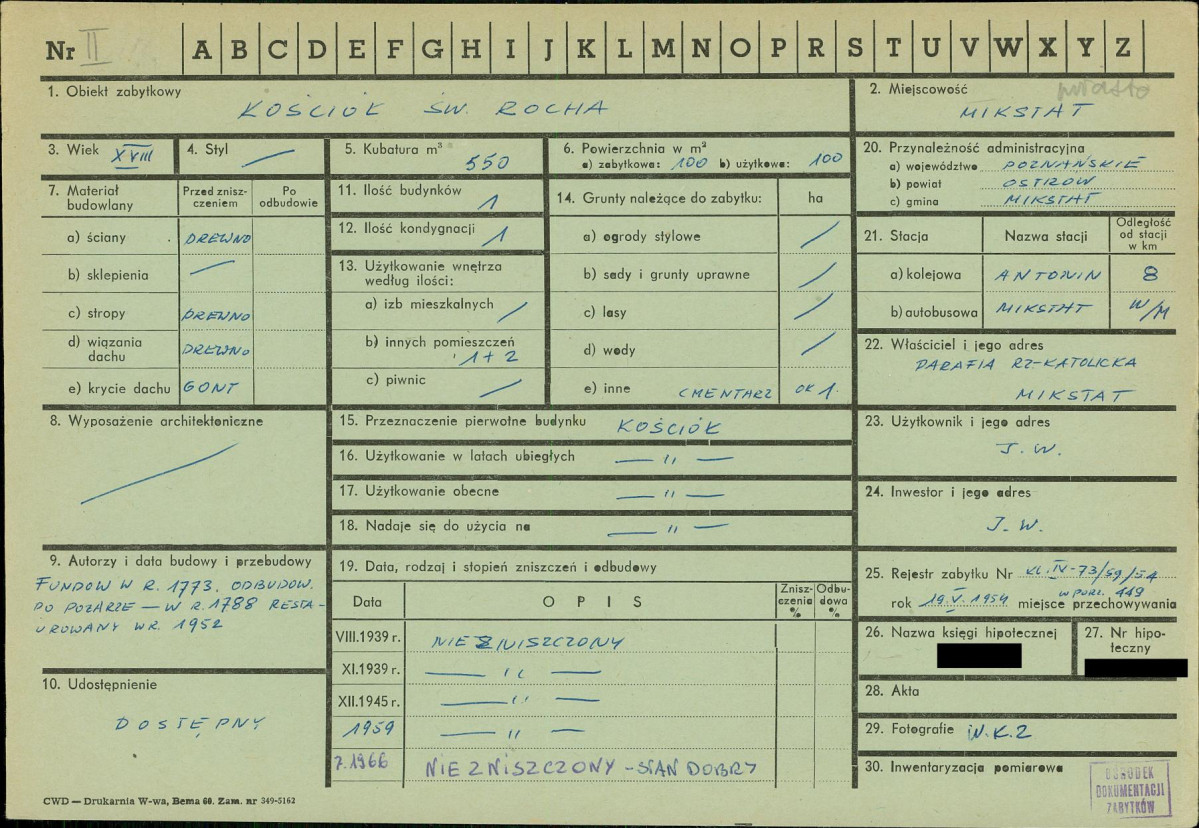 Nr II A B C D E F G H I J K L M N O P R S T U V W X Y Z
1. Obiekt zabytkowy
KOŚCIÓŁ ŚW. ROCHA
2. Miejscowość
miasto
MIKSTAT
3. Wiek XVIII
4. Styl
5. Kubatura m³ 550
6. Powierzchnia w m²
a) zabytkowa: 100 b) użytkowa: 100
20. Przynależność administracyjna
a) województwo POZNAŃSKIE
b) powiat OSTRÓW
c) gmina MIKSTAT
7. Materiał budowlany
Przed znisz-
czeniem
Po
odbudowie
a) ściany DREWNO
b) sklepienia
c) stropy DREWNO
d) wiązania
dachu DREWNO
e) krycie dachu GONT
11. Ilość budynków 1
12. Ilość kondygnacji 1
13. Użytkowanie wnętrza
według ilości:
a) izb mieszkalnych
b) innych pomieszczeń
1+2
c) piwnic
14. Grunty należące do zabytku: ha
a) ogrody stylowe
b) sady i grunty uprawne
c) lasy
d) wody
e) inne CMENTARZ OK 1.
21. Stacja Nazwa stacji
Odległość
od stacji
w km
a) kolejowa ANTONIN 8
b) autobusowa MIKSTAT W/M
22. Właściciel i jego adres
PARAFIA RZ-KATOLICKA
MIKSTAT
8. Wyposażenie architektoniczne
15. Przeznaczenie pierwotne budynku KOŚCIÓŁ
16. Użytkowanie w latach ubiegłych — " —
17. Użytkowanie obecne — " —
18. Nadaje się do użycia na — " —
23. Użytkownik i jego adres
J. W.
24. Inwestor i jego adres
J. W.
9. Autorzy i data budowy i przebudowy
FUNDOW W R. 1773. ODBUDOW.
PO POŻARZE — W R. 1788 RESTA-
UROWANY W R. 1952
10. Udostępnienie
DOSTĘPNY
19. Data, rodzaj i stopień zniszczeń i odbudowy
Data OPIS
Znisz-
czenia
%
Odbu-
dowa
%
VIII.1939 r. NIEZNISZCZONY
XI.1939 r. — " —
XII.1945 r. — " —
1959 — " —
7.1966 NIEZNISZCZONY - STAN DOBRY
25. Rejestr zabytku Nr KL.IV-73/59/54
W PORZ. 449
rok 19.V.1954 miejsce przechowywania
26. Nazwa księgi hipotecznej
27. Nr hipo-
teczny
28. Akta
29. Fotografie W.K.Z
30. Inwentaryzacja pomiarowa
OŚRODEK
DOKUMENTACJI
ZABYTKÓW
CWD — Drukarnia W-wa, Bema 60. Zam. nr 349-5162